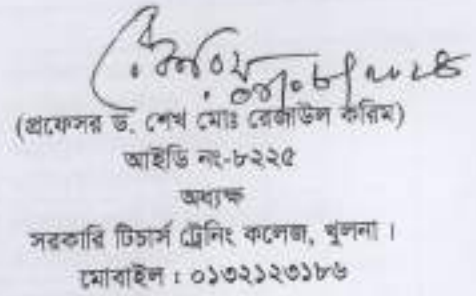 (প্রফেসর ড. শেখ মোঃ রেজাউল করিম)
আইডি নং-৮২২৫
অধ্যক্ষ
সরকারি টিচার্স ট্রেনিং কলেজ, খুলনা ।
মোবাইল : ০১৩২১২৩১৮৬